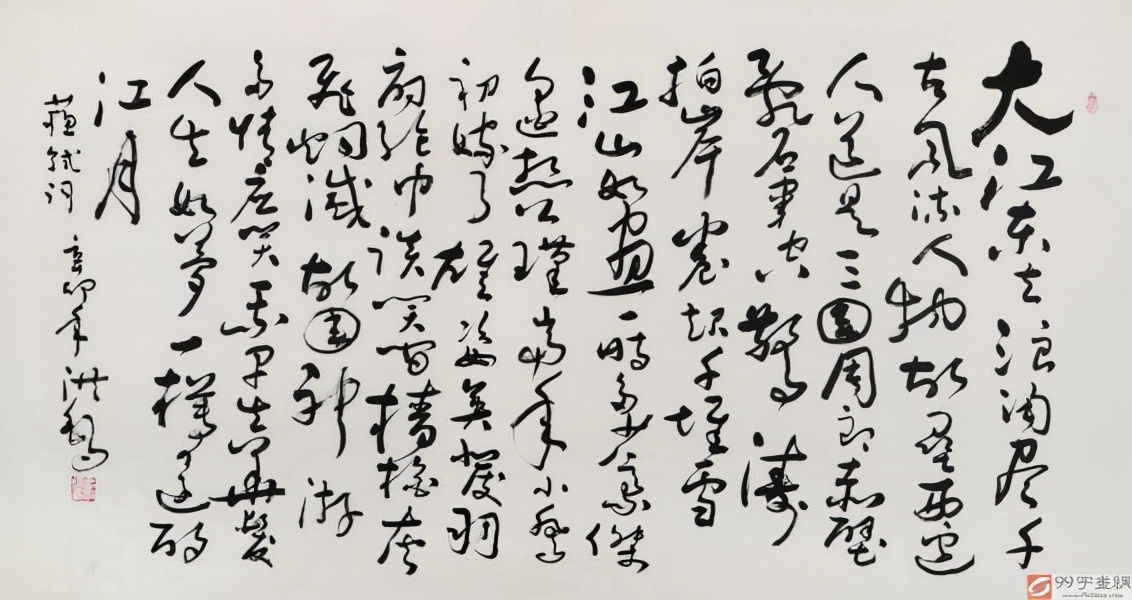 大江东去浪淘尽千
古风流人物故垒西边
人道是三國周郎赤壁
亂石穿空驚濤
拍岸卷起千堆雪
江山如畫一時多少豪傑
遥想公瑾当年小乔
初嫁了雄姿英发羽
扇纶巾谈笑间樯橹灰
飞烟滅故國神游
多情应笑我早生華髮
人生如夢一樽还酹
江月
蘇軾词 辛卯年
99字画網